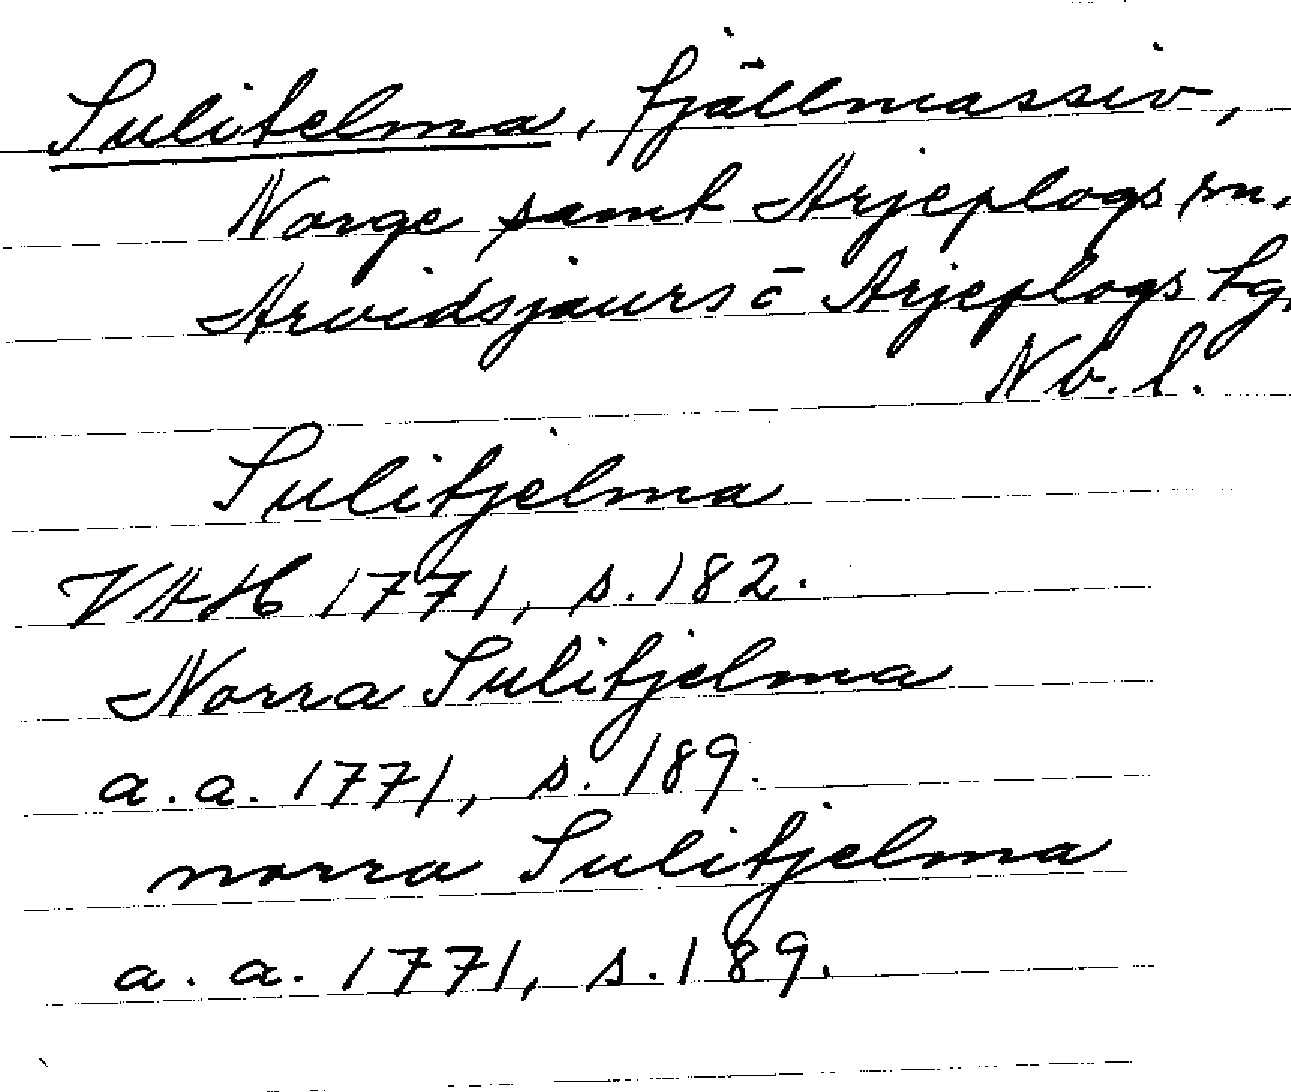 Sulitelma, fjällmassiv,
Norge samt Arjeplogs sn.
Arvidsjaurs o Arjeplogs tg.
Nb. l.
Sulitjelma
VAH 1771, s. 182.
Norra Sulitjelma
a. a. 1771, s. 189.
norra Sulitjelma
a. a. 1771, s. 189.